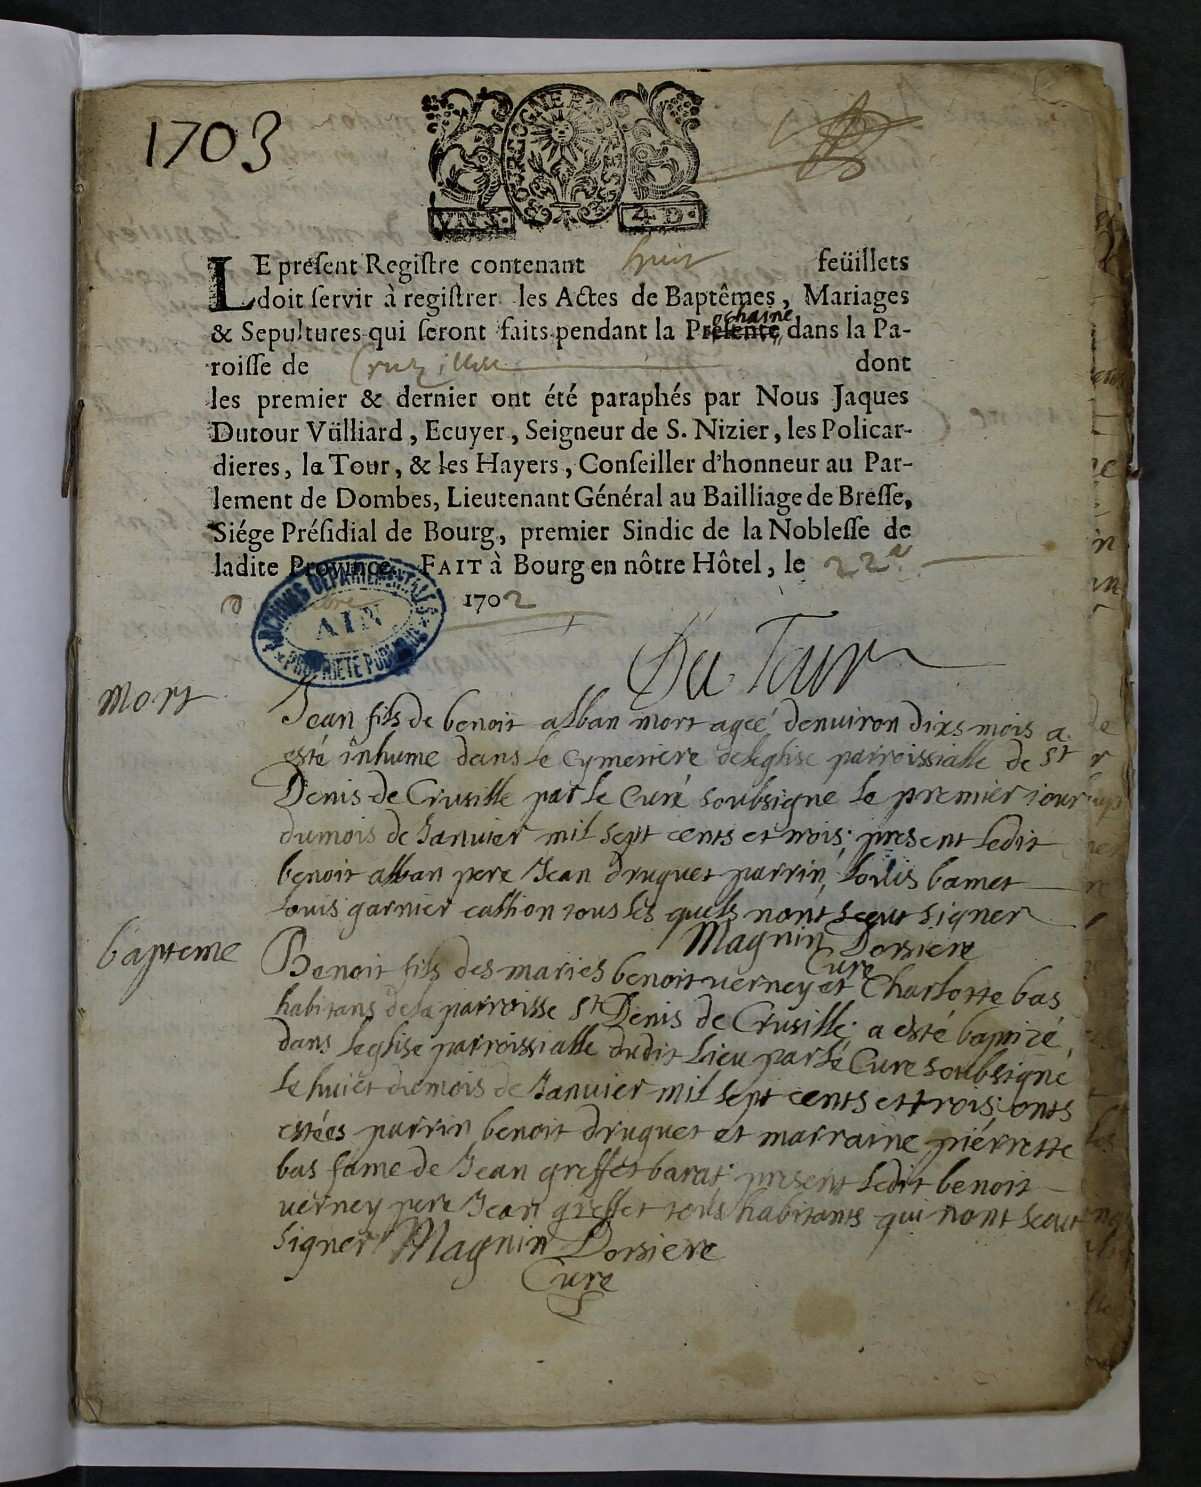 1703
BOURGOGNE E BRESSE
UN S.
4 D.
LE présent Registre contenant huit feüillets
doit servir à registrer les Actes de Baptêmes, Mariages
& Sepultures qui seront faits pendant la Presente ochaine dans la Pa-
roisse de Cruzille dont
les premier & dernier ont été paraphés par Nous Jaques
Dutour Vülliard, Ecuyer, Seigneur de S. Nizier, les Policar-
dieres, la Tour, & les Hayers, Conseiller d'honneur au Par-
lement de Dombes, Lieutenant Général au Bailliage de Bresse,
Siége Présidial de Bourg, premier Sindic de la Noblesse de
ladite Province. FAIT à Bourg en nôtre Hôtel, le 22e
1702
ARCHIVES DEPARTEMENTALES
AIN
PROPRIETE PUBLIQUE
Du Tour
mort
Jean fils de benoit alban mort ageé denuiron dixs mois a
esté inhume dans le cymetiere deleglise parroissialle de St
Denis de Crusille par le Curé soubsigne le premier iour
dumois de Januier mil sept cents et trois; present ledit
benoit alban pere Jean druguet parrin, louis bamet
louis garnier callion tous les quels nont sceut signer
Magnin Dorsiere
Cure
bapteme
Benoit fils des maries benoit verney et Charlotte bas
habitans dela parroisse St Denis de Crusille; a esté baptizé
dans leglise parroissialle dudit lieu par le Cure soubsigne
le huiet dumois de Januier mil sept cents et trois; onts
estées parrin benoit druguet et marraine piérrette
bas fame de Jean greffet barat; present ledit benoit
verney pere Jean greffet tous habitants qui nont sceut
signer Magnin Dorsiere
Cure